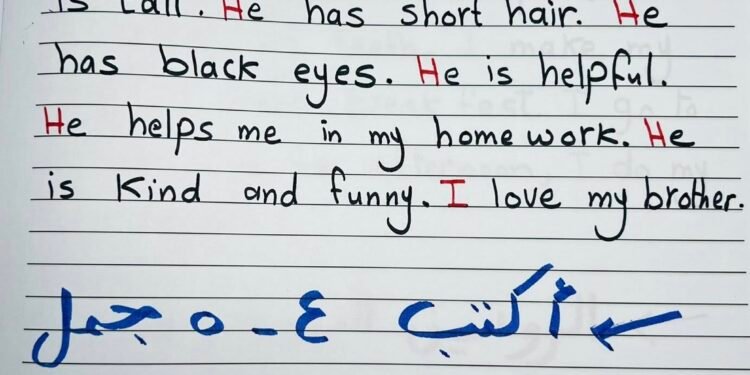 is tall. He has short hair. He
has black eyes. He is helpful.
He helps me in my home work. He
is Kind and funny. I love my brother.
← أكتب ٤ - ٥ جمل